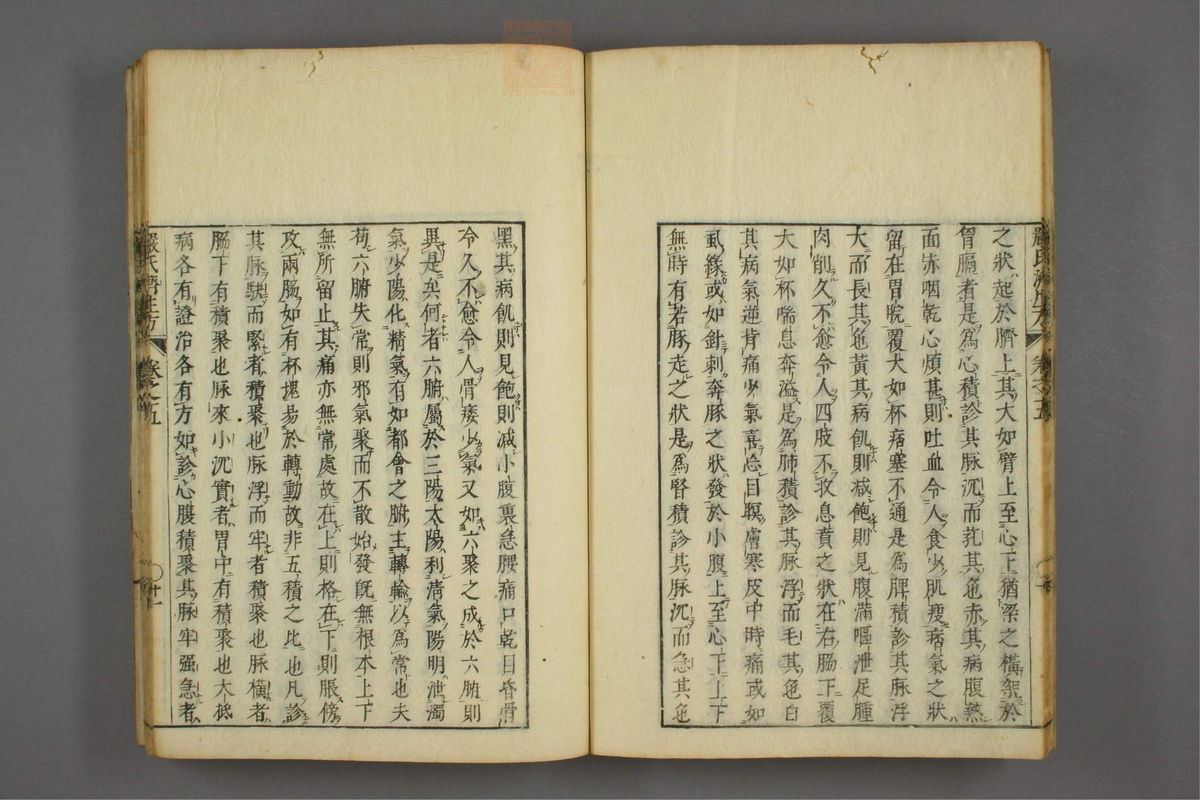 之狀起於臍上其大如臂上至心下猶梁之橫架於
胷膈者是爲心積診其脉沉而芤其色赤其病腹熱
面赤咽乾心煩甚則吐血令人食少肌瘦痞氣之狀
留在胃脘覆大如杯痞塞不通是爲脾積診其脉浮
大而長其色黃其病飢則減飽則見腹滿嘔泄足腫
肉削久不愈令人四肢不收息賁之狀在右脇下覆
大如杯喘息奔溢是爲肺積診其脉浮而毛其色白
其病氣逆背痛少氣喜忘目瞑膚寒皮中時痛或如
虱緣或如針刺奔豚之狀發於小腹上至心下上下
無時有若豚走之狀是爲腎積診其脉沉而急其色
嚴氏濟生方 卷之五
黑其病飢則見飽則減小腹裏急腰痛口乾目昏骨
令久不愈令人骨痿少氣又如六聚之成於六腑則
異是矣何者六腑屬於三陽太陽利清氣陽明泄濁
氣少陽化精氣有如都會之腑主轉輸以爲常也夫
苟六腑失常則邪氣聚而不散始發旣無根本上下
無所留止其痛亦無常處故在上則格在下則脹傍
攻兩脇如有杯塊易於轉動故非五積之比也凡診
其脉駃而緊者積聚也脉浮而牢者積聚也脉橫者
脇下有積聚也脉來小沉實者胃中有積聚也大抵
病各有證治各有方如診心腹積聚其脉牢强急者
嚴氏濟生方 卷之五 廿一